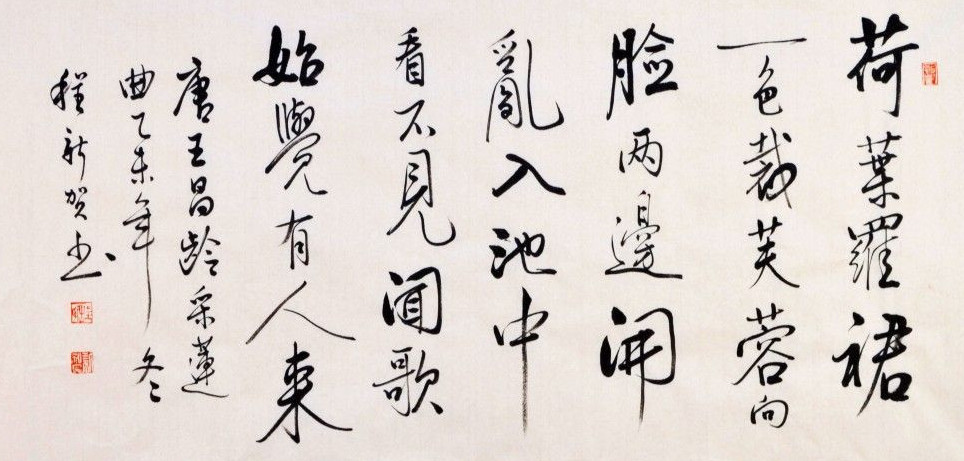 荷葉羅裙
一色裁芙蓉向
臉两邊開
亂入池中
看不見闻歌
始覺有人来
唐王昌齡采蓮
曲乙未年冬
程新贺书